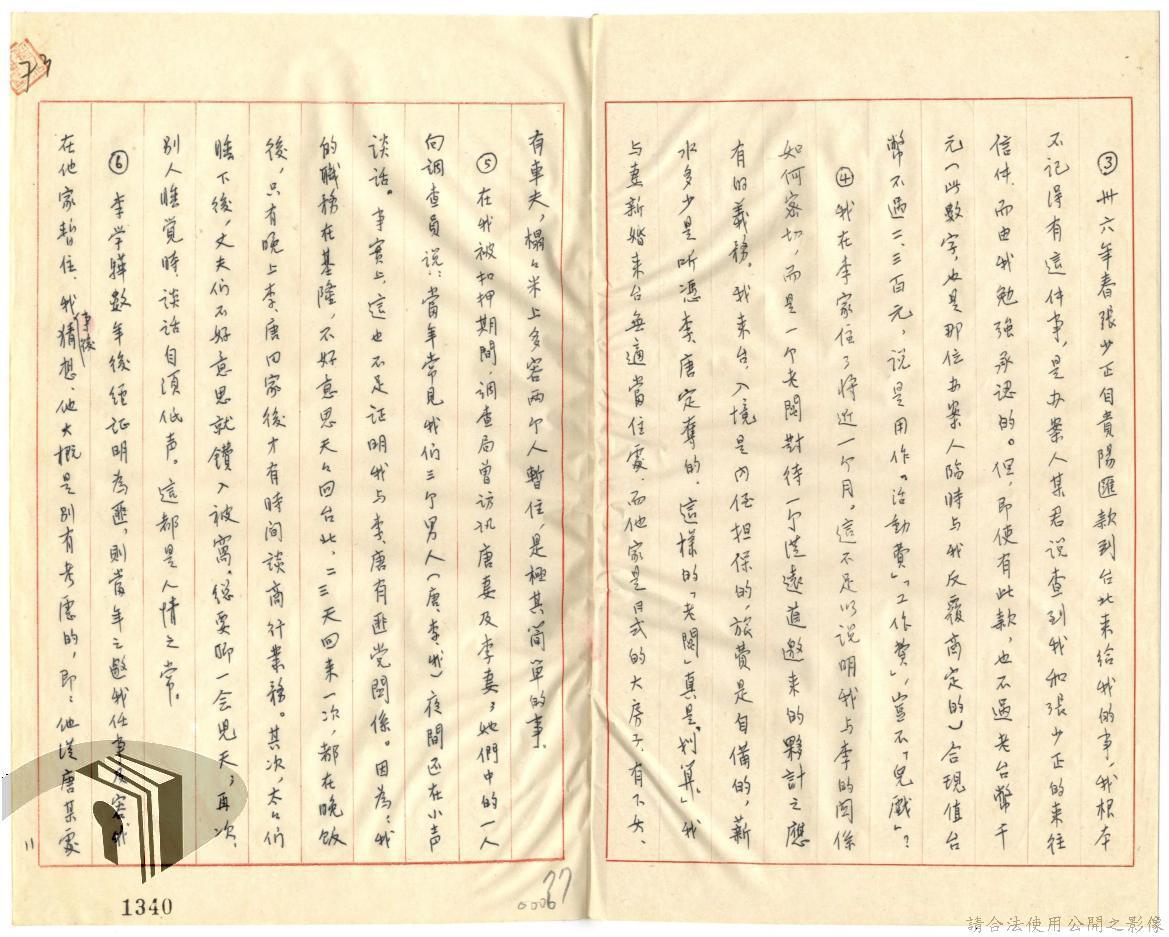 ③卅六年春張少正自貴陽匯款到台北来給我的事，我根本
不记得有這件事，是办案人某君说查到我和張少正的来往
信件，而由我勉强承认的。但，即使有此款，也不過老台幣千
元（此数字，也是那位办案人臨時与我反覆商定的）合現值台
幣不過二、三百元，说是用作「活動費」「工作費」，豈不「兒戲」？
④我在李家住了将近一个月。這不足以说明我与李的関係
如何密切，而是一个老闆對待一个従遠道邀来的夥計之應
有的義務。我来台，入境是內侄担保的，旅費是自備的，薪
水多少是听憑李、唐定奪的。這樣的「老闆」真是「划算」。我
与妻新婚来台無適當住處，而他家是日式的大房子，有下女、
有車夫，榻々米上多容两个人暫住，是極其简單的事。
⑤在我被扣押期間，调查局曾访讯唐妻及李妻；她們中的一人
向調查員说：當年常見我们三个男人（唐、李、我）夜間还在小声
谈话。事实上，這也不足证明我与李、唐有匪党関係。因為：我
的職務在基隆，不好意思天々回台北，二三天回来一次，都在晚飯
後，只有晚上李、唐回家後才有時间談商行業務。其次，太々们
睡下後，丈夫们不好意思就鑽入被窩，總要聊一会兒天；再次，
别人睡覺時，谈话自须低声。這都是人情之常。
⑥李学驊数年後経证明為匪，則當年之邀我任事及容我
在他家暂住，我猜想，他大概是别有考慮的，即：他従唐某處
73
11
1340
37
0006
請合法使用公開之影像